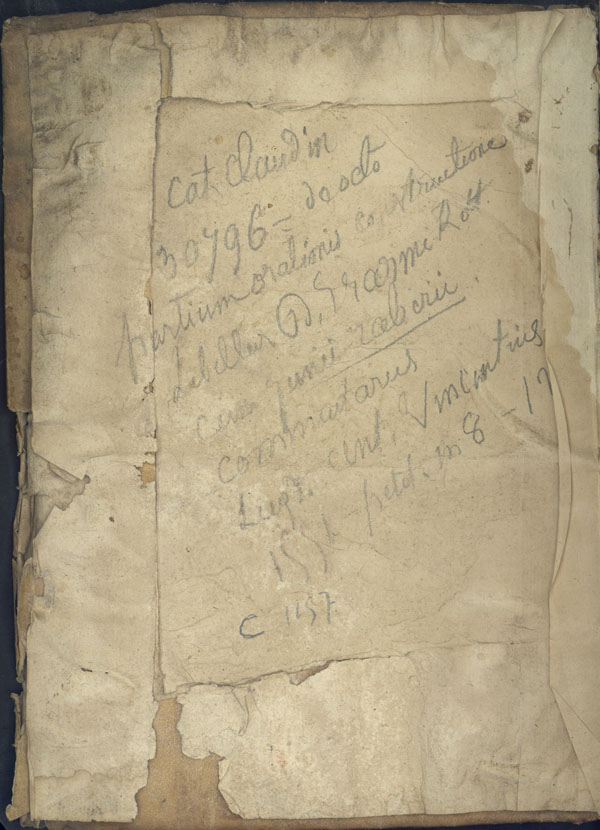 cat. Claudin
30796 = de octo
partium orationis constructione
Libellus D. Erasmi Rott
cum Junii rabirii
commentariis
Lugd. Ant. Vincentius
petit. in 8 - 17
C 1157